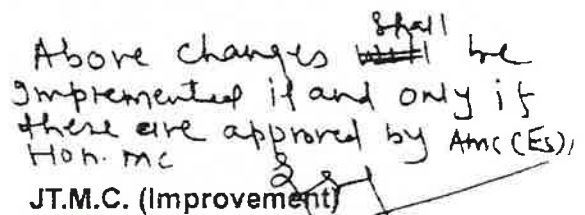 Above changes shall be
Impremented if and only if
there are approved by Amc (Es),
Hon. mc
JT.M.C. (Improvement)